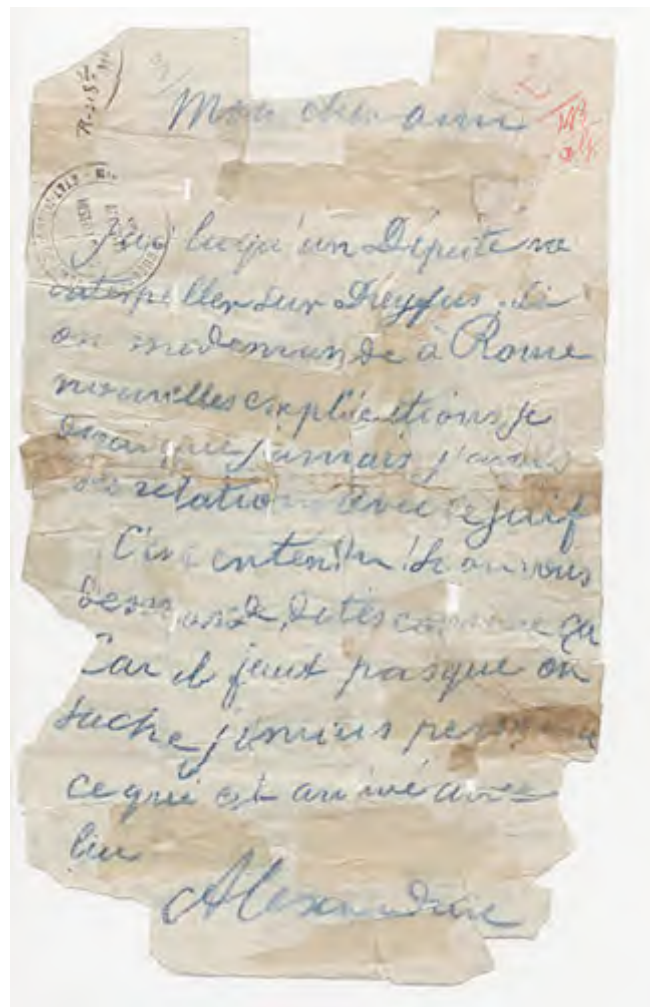 Mon cher ami
J'ai lu qu'un Député va
interpeller sur Dreyfus. Si
on me demande à Rome
nouvelles explications je
dirai que jamais j'avais
des relations avec ce juif
C'est entendu. Si on vous
demande, dites comme ça
Car il faut pas que on
sache jamais personne
ce qui est arrivé avec
lui
Alexandrine